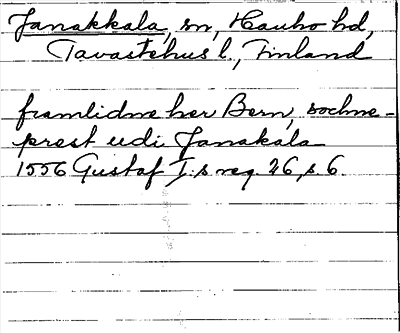 Janakkala, sn, Hauho hd,
Tavastehus l., Finland
framlidne her Bern, sochne-
prest udi Janakala
1556 Gustaf I.s reg. 26, s. 6.